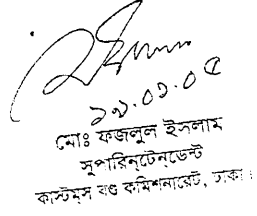 ১৯.০১.০৫
মোঃ ফজলুল ইসলাম
সুপারিন্টেনডেন্ট
কাস্টমস বন্ড কমিশনারেট, ঢাকা।